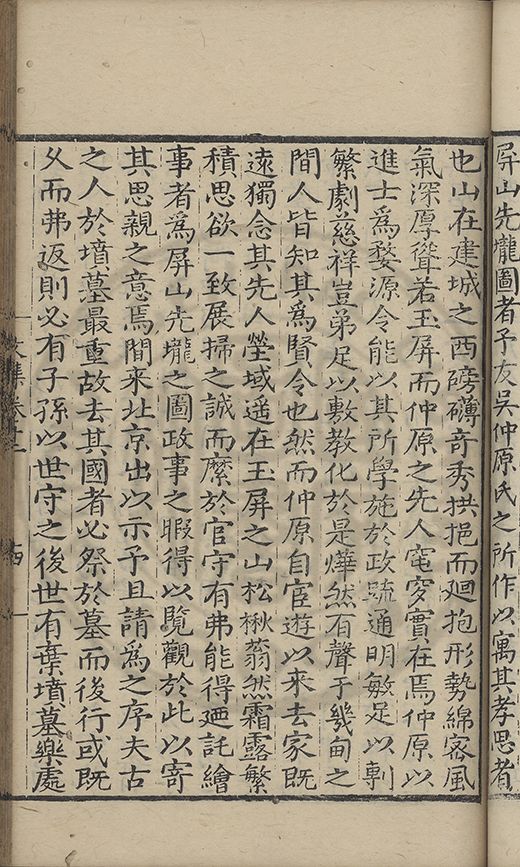 屏山先壠圖者予友吳仲原氏之所作以寓其孝思者
也山在建城之西磅礴竒秀拱挹而廻抱形勢綿宻風
氣深厚聳若玉屏而仲原之先人窀穸實在焉仲原以
進士爲婺源令能以其所學施於政疏通明敏足以剸
繁劇慈祥豈弟足以敷教化於是燁然有聲于畿甸之
間人皆知其爲賢令也然而仲原自宦遊以來去家既
遠獨念其先人塋域遥在玉屏之山松楸蓊然霜露繁
積思欲一致展掃之誠而縻於官守有弗能得廼託繪
事者爲屏山先壠之圖政事之暇得以覧觀於此以寄
其思親之意焉間来北京出以示予且請爲之序夫古
之人於墳墓最重故去其國者必祭於墓而後行或既
乆而弗返則必有子孫以世守之後世有棄墳墓樂處
文集卷十二 十四